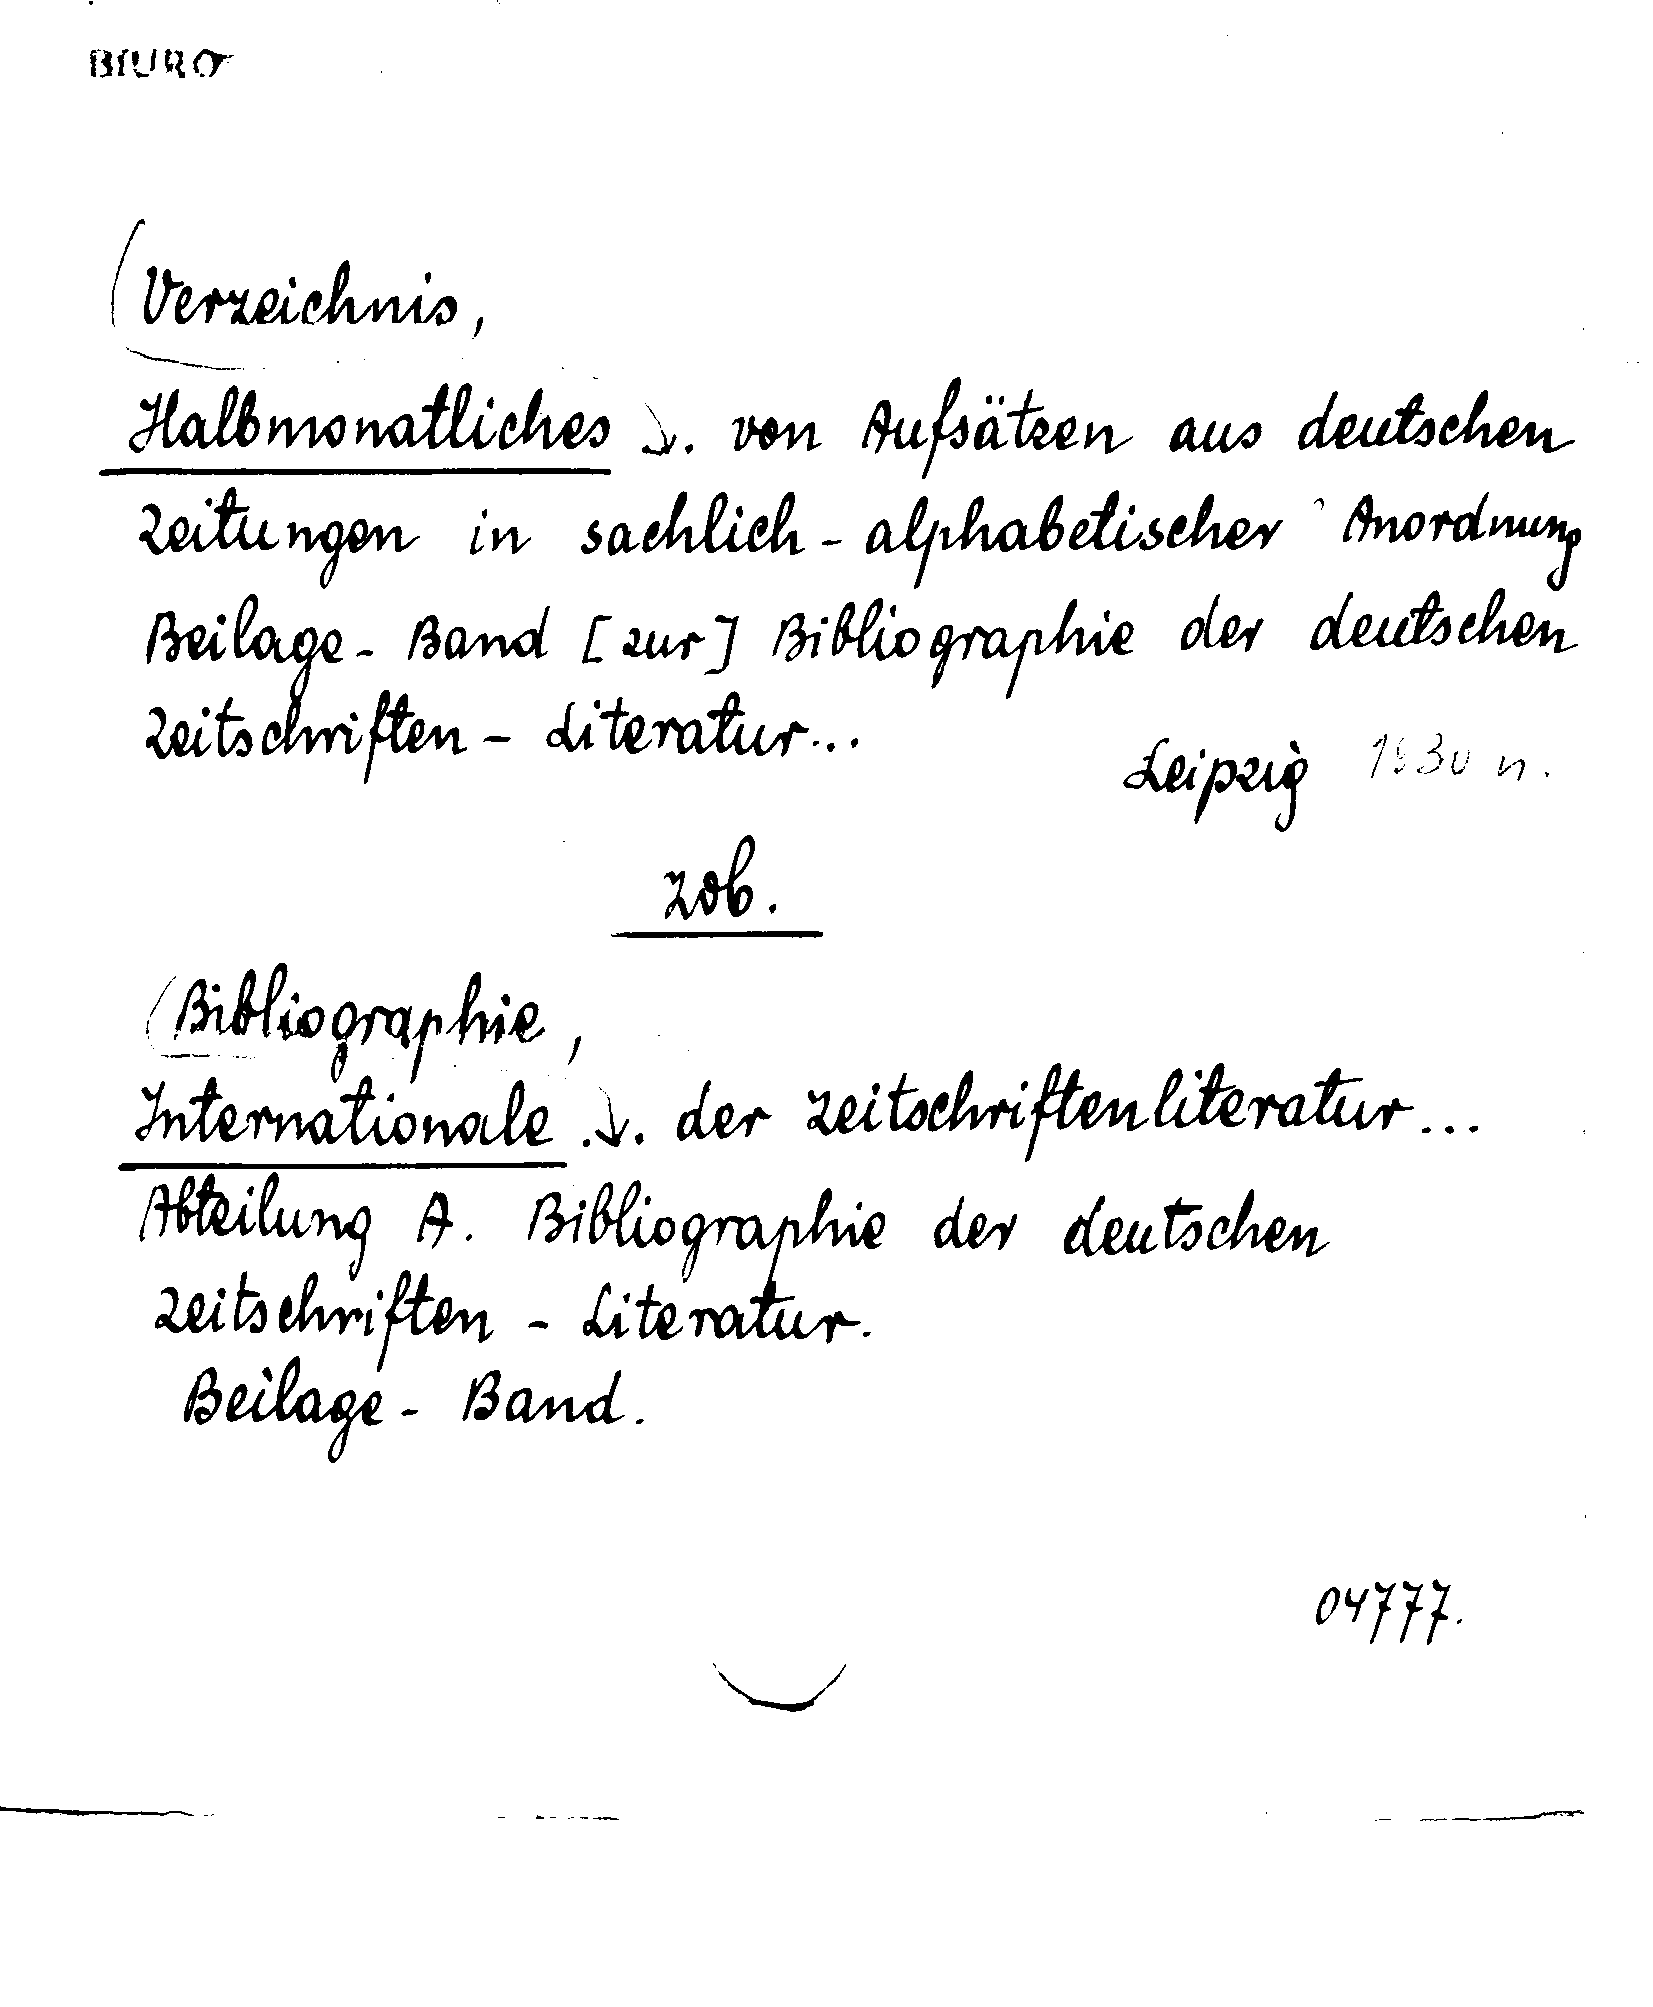 BIURO
(Verzeichnis,
Halbmonatliches ↓. von Aufsätzen aus deutschen
Zeitungen in sachlich-alphabetischer Anordnung
Beilage-Band [zur] Bibliographie der deutschen
Zeitschriften-Literatur...
Leipzig 1930 n.
zob.
(Bibliographie,
Internationale .↓. der Zeitschriftenliteratur...
Abteilung A. Bibliographie der deutschen
Zeitschriften-Literatur.
Beilage-Band.
04777.